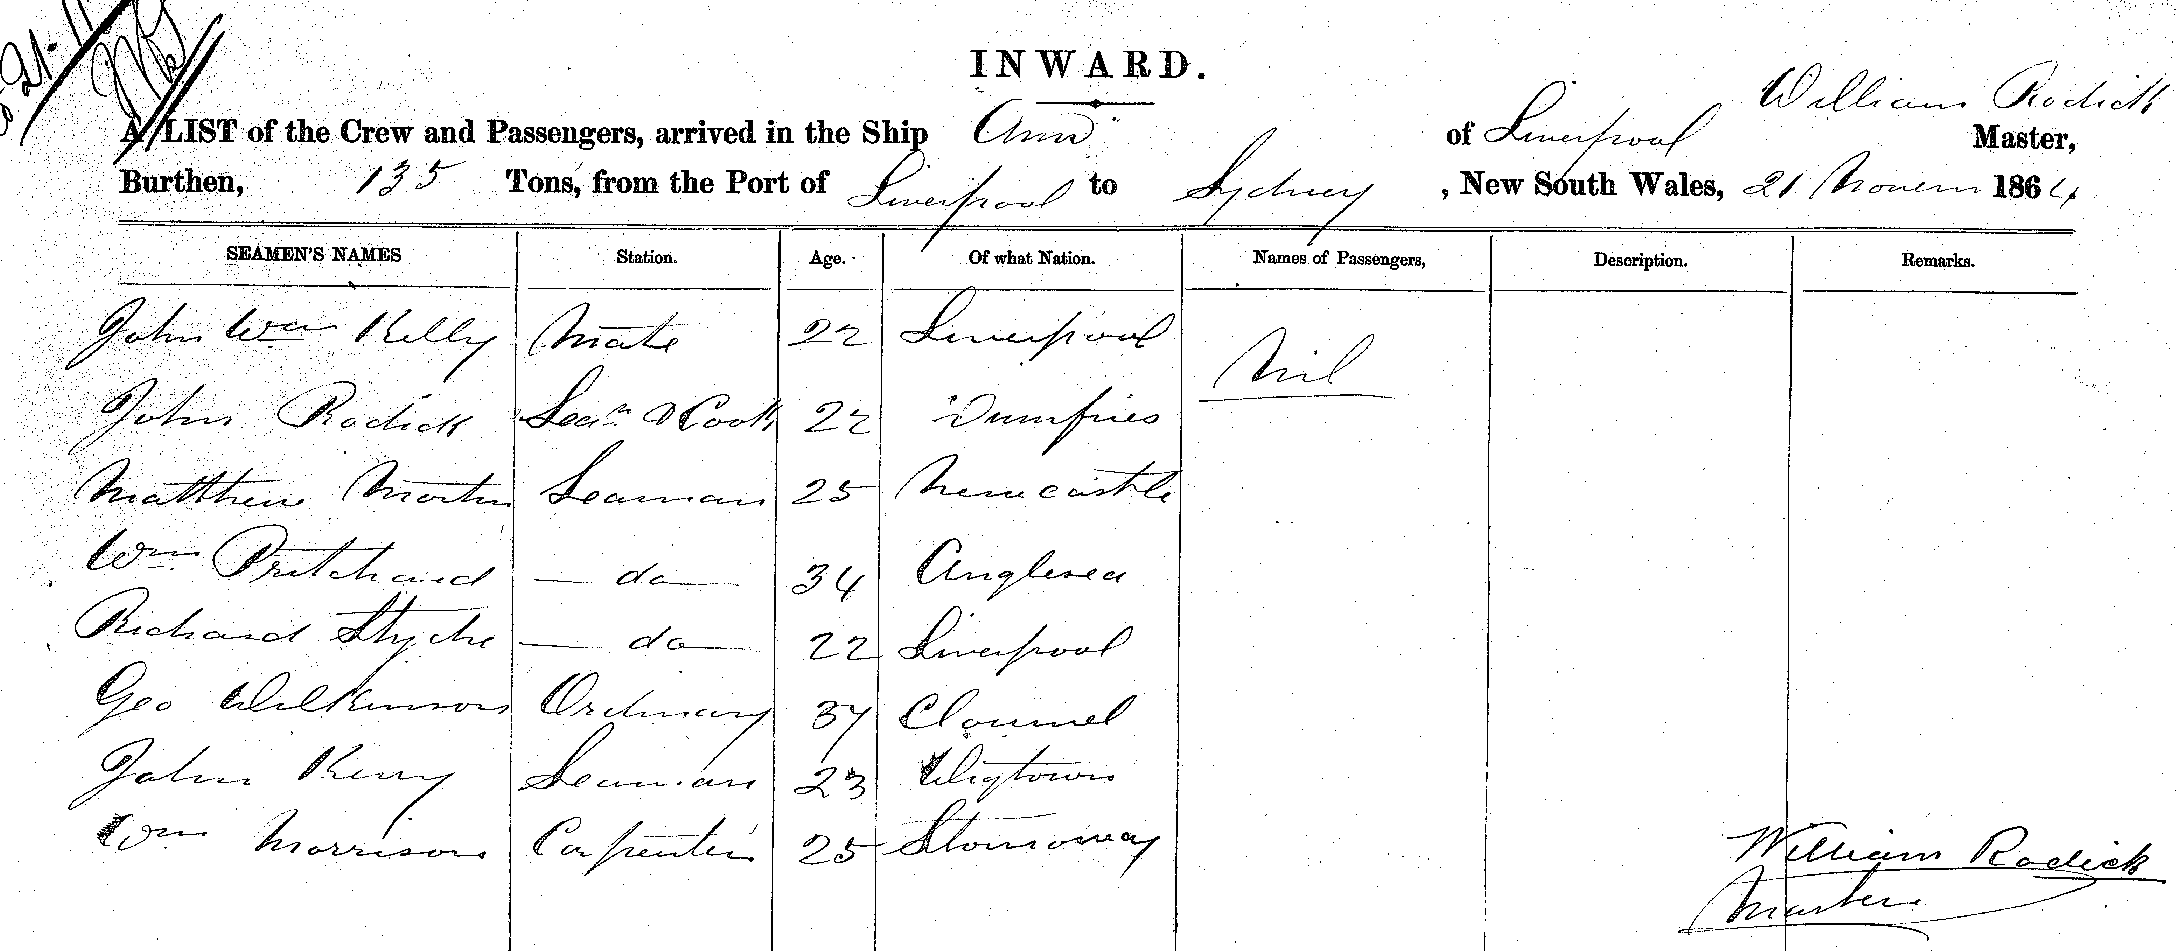 21.
INWARD.
William Rodick
A LIST of the Crew and Passengers, arrived in the Ship Ann of Liverpool Master,
Burthen, 135 Tons, from the Port of Liverpool to Sydney , New South Wales, 21 Novem 1864
SEAMEN'S NAMES Station. Age. Of what Nation. Names of Passengers, Description. Remarks.
John Wm Kelly Mate 22 Liverpool Nil
John Rodick Sean & Cook 22 Dumfries
Matthew Morton Seaman 25 Newcastle
Wm Pritchard — do — 34 Anglesea
Richard Styche — do — 22 Liverpool
Geo Wilkinson Ordinary 37 Clonmel
John Kerry Seaman 23 Wigtown
Wm Morrison Carpenter 25 Stornoway
William Rodick
Master